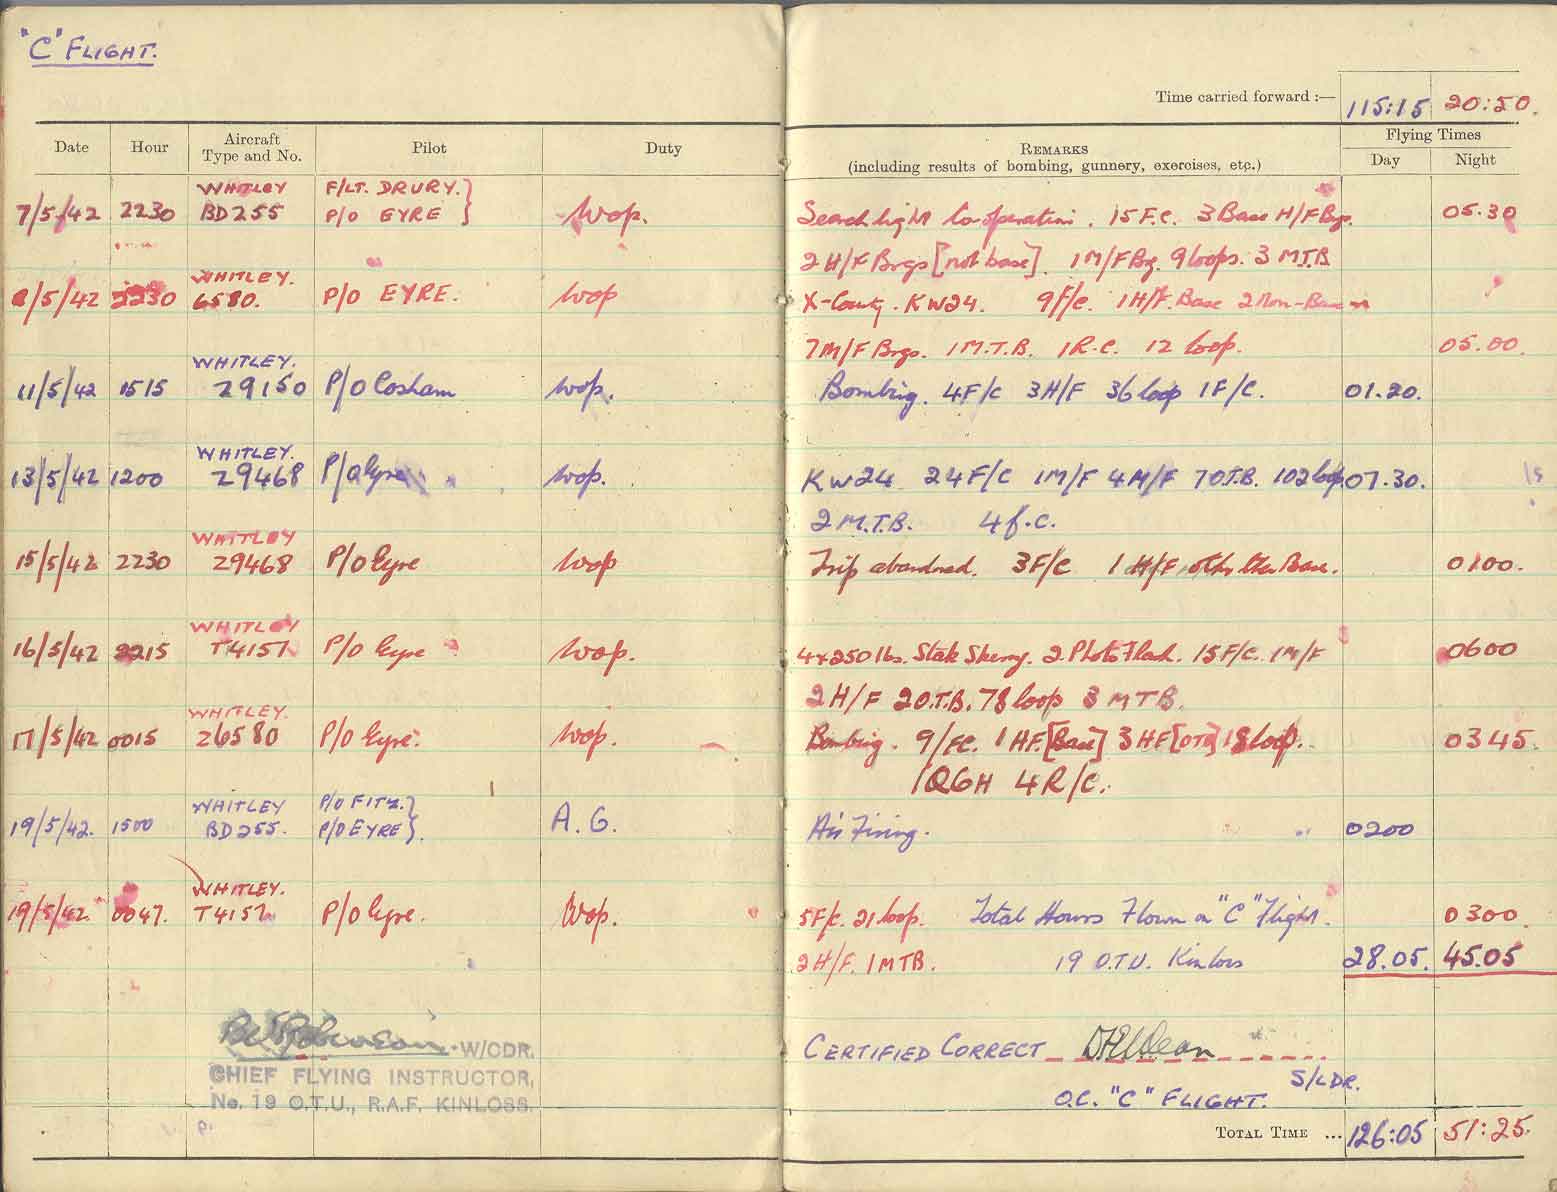 "C" FLIGHT.
Time carried forward :— 115:15 20:50.
Date Hour Aircraft Type and No. Pilot Duty REMARKS (including results of bombing, gunnery, exercises, etc.) Flying Times Day Night
WHITLEY F/LT. DRURY.
7/5/42 2230 BD255 P/O EYRE Wop. Searchlight Co-operation. 15 F.C. 3 Base H/F Brgs. 05.30
2 H/F Brgs [not base]. 1 M/F Brg. 9 loops. 3 M.T.B
WHITLEY.
/5/42 2230 6580. P/O EYRE. Wop X-County. KW24. 9 F/C. 1 H/F. Base 2 Non-Base
7 M/F Brgs. 1 M.T.B. 1 R.C. 12 loop. 05.00.
WHITLEY.
11/5/42 1515 Z9150 P/O Cosham Wop. Bombing. 4 F/C 3 H/F 36 loop 1 F/C. 01.20.
WHITLEY.
13/5/42 1200 Z9468 P/O Eyre Wop. KW24 24 F/C 1 M/F 4 M/F 7 O.T.B. 102 loop 07.30.
2 M.T.B. 4 f.c.
WHITLEY
15/5/42 2230 Z9468 P/O Eyre Wop Trip abandoned. 3 F/C 1 H/F other than Base. 0100.
WHITLEY
16/5/42 2215 T4157 P/O Eyre Wop. 4x250 lbs. Stak Skerry. 2 Photo Flash. 15 F/C. 1 M/F 0600
2 H/F 2 O.T.B. 78 loop 3 M T B.
WHITLEY.
17/5/42 0015 Z6580 P/O Eyre. Wop. Bombing. 9/FC. 1 HF. [Base] 3 HF [OTU] 18 loop. 0345.
1 QGH 4 R/C.
WHITLEY P/O FITZ.
19/5/42. 1500 BD255. P/O EYRE A.G. Air Firing. 0200
WHITLEY.
19/5/42 0047. T4157 P/O Eyre. Wop. 5 F/c. 21 loop. Total Hours Flown on "C" Flight. 0300
2 H/F. 1 MTB. 19 O.T.U. Kinloss 28.05. 45.05
W/CDR.
CHIEF FLYING INSTRUCTOR,
No. 19 O.T.U., R.A.F. KINLOSS.
CERTIFIED CORRECT
S/LDR.
O.C. "C" FLIGHT.
TOTAL TIME ... 126:05 51:25.